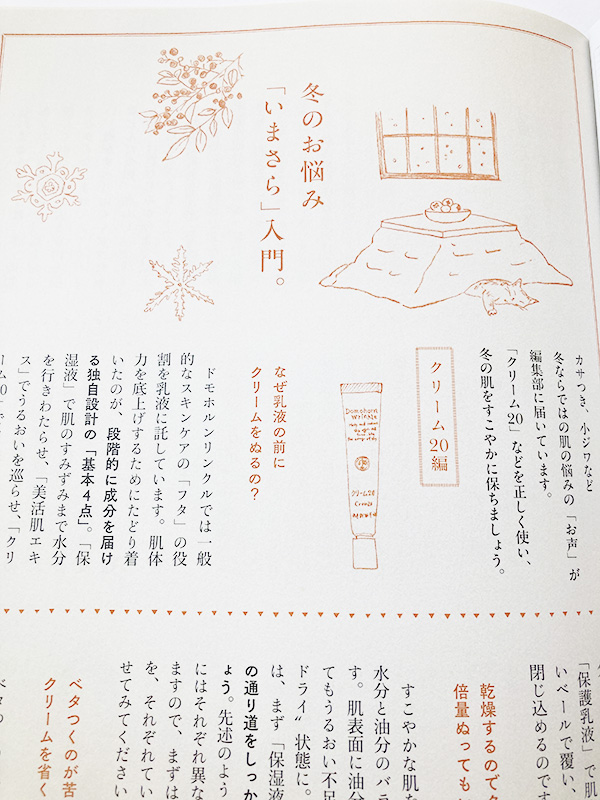 冬のお悩み
「いまさら」入門。
カサつき、小ジワなど
冬ならではの肌の悩みの「お声」が
編集部に届いています。
「クリーム20」などを正しく使い、
冬の肌をすこやかに保ちましょう。
クリーム20編
Domohorn
Wrinkle
クリーム20
Cream
なぜ乳液の前に
クリームをぬるの?
ドモホルンリンクルでは一般
的なスキンケアの「フタ」の役
割を乳液に託しています。肌体
力を底上げするためにたどり着
いたのが、段階的に成分を届け
る独自設計の「基本4点」。「保
湿液」で肌のすみずみまで水分
を行きわたらせ、「美活肌エキ
ス」でうるおいを巡らせ、「クリ
「保護乳液」で肌
いベールで覆い、
閉じ込めるのです
乾燥するのでク
倍量ぬっても
すこやかな肌を
水分と油分のバラ
す。肌表面に油分
てもうるおい不足
ドライ〟状態に。
は、まず「保湿液
の通り道をしっか
ょう。先述のよう
にはそれぞれ異な
ますので、まずは
を、それぞれてい
せてみてください
ベタつくのが苦
クリームを省く